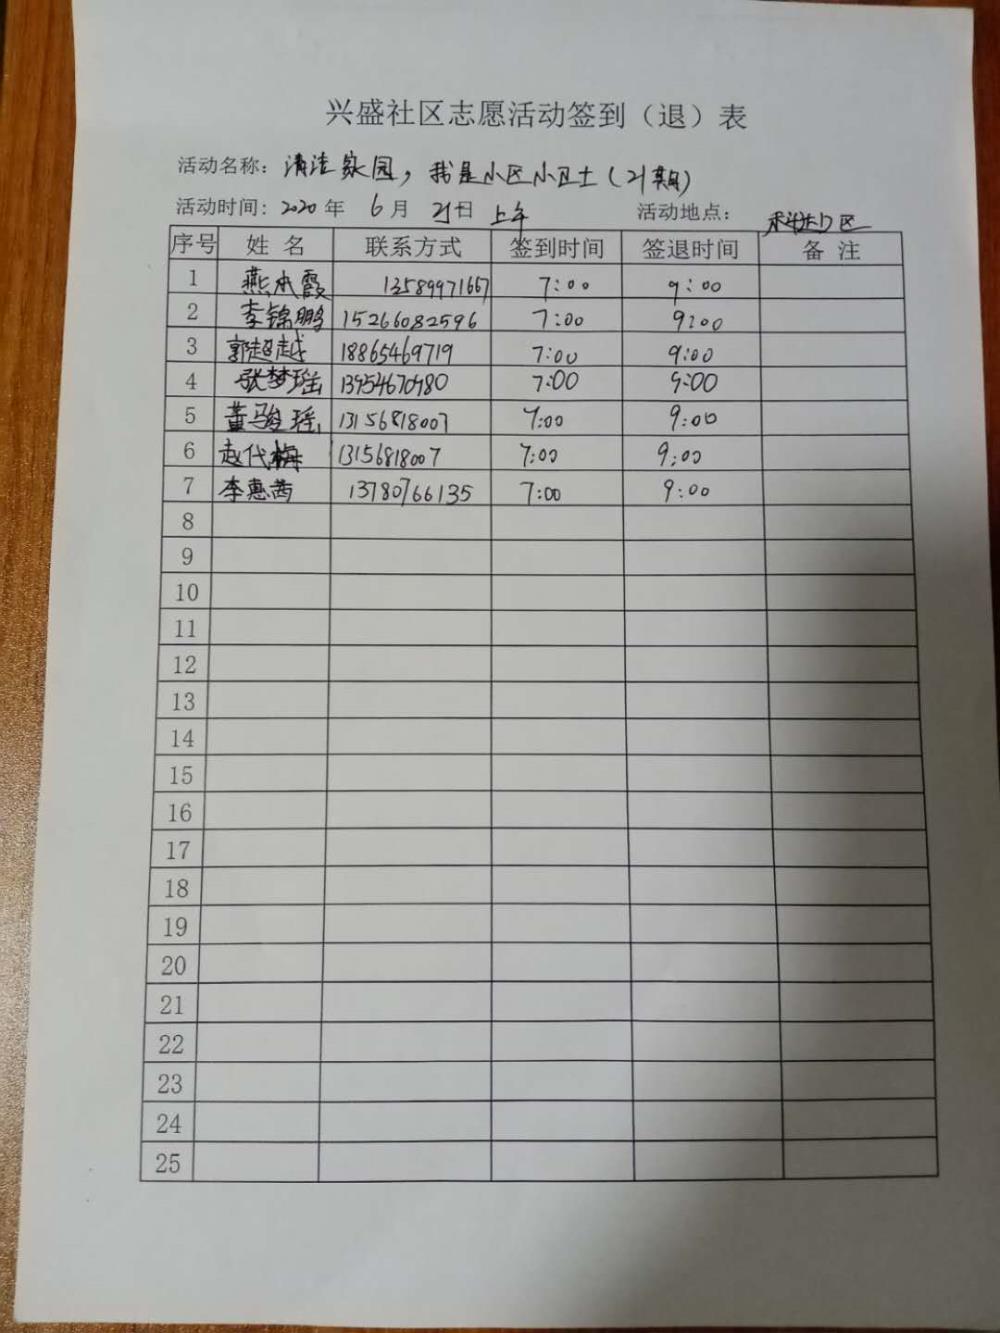 兴盛社区志愿活动签到（退）表
活动名称：清洁家园，我是小区小卫士（21期）
活动时间：2020年 6月 21日 上午 活动地点： 区
序号 姓 名 联系方式 签到时间 签退时间 备 注
1 燕本霞 13589971667 7:00 9:00
2 李锦鹏 15266082596 7:00 9:00
3 郭超越 18865469719 7:00 9:00
4 张梦瑶 13954670980 7:00 9:00
5 董骏瑶 13156818007 7:00 9:00
6 赵代梅 13156818007 7:00 9:00
7 李惠茜 13780766135 7:00 9:00
8
9
10
11
12
13
14
15
16
17
18
19
20
21
22
23
24
25